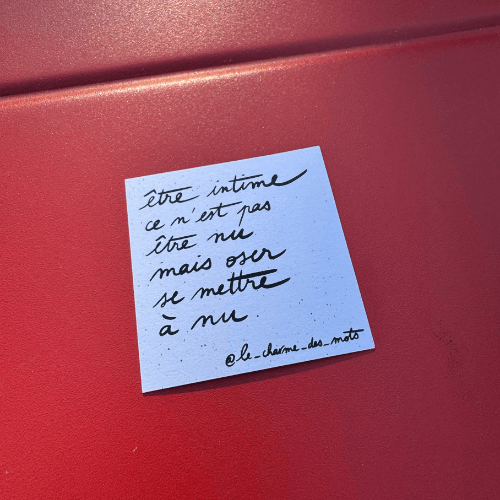 être intime
ce n'est pas
être nu
mais oser
se mettre
à nu.
@le_charme_des_mots